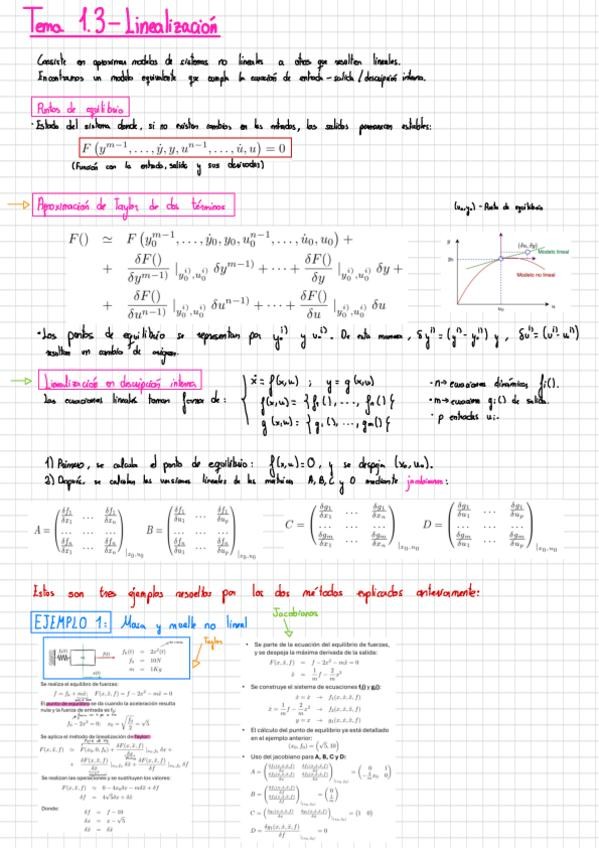 Tema 1.3 - Linealización
Consiste en aproximar modelos de sistemas no lineales a otros que resulten lineales.
Encontramos un modelo equivalente que cumpla la ecuación de entrada - salida / descripción interna.
Puntos de equilibrio
· Estado del sistema donde, si no existen cambios en las entradas, las salidas permanecen estables:
F (y^{m-1}, ..., ẏ, y, u^{n-1}, ..., u̇, u) = 0
(Función con la entrada, salida y sus derivadas)
Aproximación de Taylor de dos términos
(u₀, y₀) - Punto de equilibrio
F() ≃ F (y₀^{m-1}, ..., ẏ₀, y₀, u₀^{n-1}, ..., u̇₀, u₀) +
+ δF()/δy^{m-1)} |_{y₀^{i)}, u₀^{i)}} δy^{m-1)} + ··· + δF()/δy |_{y₀^{i)}, u₀^{i)}} δy +
+ δF()/δu^{n-1)} |_{y₀^{i)}, u₀^{i)}} δu^{n-1)} + ··· + δF()/δu |_{y₀^{i)}, u₀^{i)}} δu
y
(δu, δy)
Modelo lineal
y₀
Modelo no lineal
u₀
u
· Los puntos de equilibrio se representan por y₀^{i)} y u₀^{i)}. De esta manera, δy^{i)} = (y^{i)} - y₀^{i)}) y, δu^{i)} = (u^{i)} - u₀^{i)})
resultan en cambio de origen.
Linealización en descripción interna
Las ecuaciones lineales toman forma de:
ẋ = f(x,u) ; y = g(x,u)
f(x,u) = {f₁(), ..., fₙ()}
g(x,u) = {g₁(), ..., gₘ()}
· n → ecuaciones dinámicas fᵢ().
· m → ecuaciones gᵢ() de salida.
· p entradas uᵢ.
1) Primero, se calcula el punto de equilibrio: f(x,u) = 0, y se despeja (x₀, u₀).
2) Después, se calculan las versiones lineales de las matrices A, B, C y D mediante jacobianos:
A = (δf₁/δx₁ ... δf₁/δxₙ ; ... ... ... ; δfₙ/δx₁ ... δfₙ/δxₙ)|x₀,u₀ B = (δf₁/δu₁ ... δf₁/δuₚ ; ... ... ... ; δfₙ/δu₁ ... δfₙ/δuₚ)|x₀,u₀ C = (δg₁/δx₁ ... δg₁/δxₙ ; ... ... ... ; δgₘ/δx₁ ... δgₘ/δxₙ)|x₀,u₀ D = (δg₁/δu₁ ... δg₁/δuₚ ; ... ... ... ; δgₘ/δu₁ ... δgₘ/δuₚ)|x₀,u₀
Estos son tres ejemplos resueltos por los dos métodos explicados anteriormente:
EJEMPLO 1: Masa y muelle no lineal
Taylor
Jacobianos
fₖ(t) = 2x²(t)
f₀ = 10N
m = 1Kg
Se realiza el equilibrio de fuerzas:
f = fₖ + mẍ; F(x, ẍ, f) = f - 2x² - mẍ = 0
El punto de equilibrio se da cuando la aceleración resulta
nula y la fuerza de entrada es f₀:
f₀ - 2x² = 0; x₀ = √(f₀/2) = √5
Se aplica el método de linealización de Taylor:
Se realizan las operaciones y se sustituyen los valores:
F(x, ẍ, f) = 0 - 4x₀δx - mδẍ + δf
δf = 4√5δx + δẍ
Donde:
δf = f - 10
δx = x - √5
δẍ = ẍ
• Se parte de la ecuación del equilibrio de fuerzas,
y se despeja la máxima derivada de la salida:
F(x, ẍ, f) = f - 2x² - mẍ = 0
ẍ = 1/m f - 2/m x²
• Se construye el sistema de ecuaciones f() y g():
ẋ = ẋ → f₁(x, ẋ, f)
ẍ = 1/m f - 2/m x² → f₂(x, ẋ, f)
y = x → g₁(x, ẋ, f)
• El cálculo del punto de equilibrio ya está detallado
en el ejemplo anterior:
(x₀, f₀) = (√5, 10)
• Uso del jacobiano para A, B, C y D: